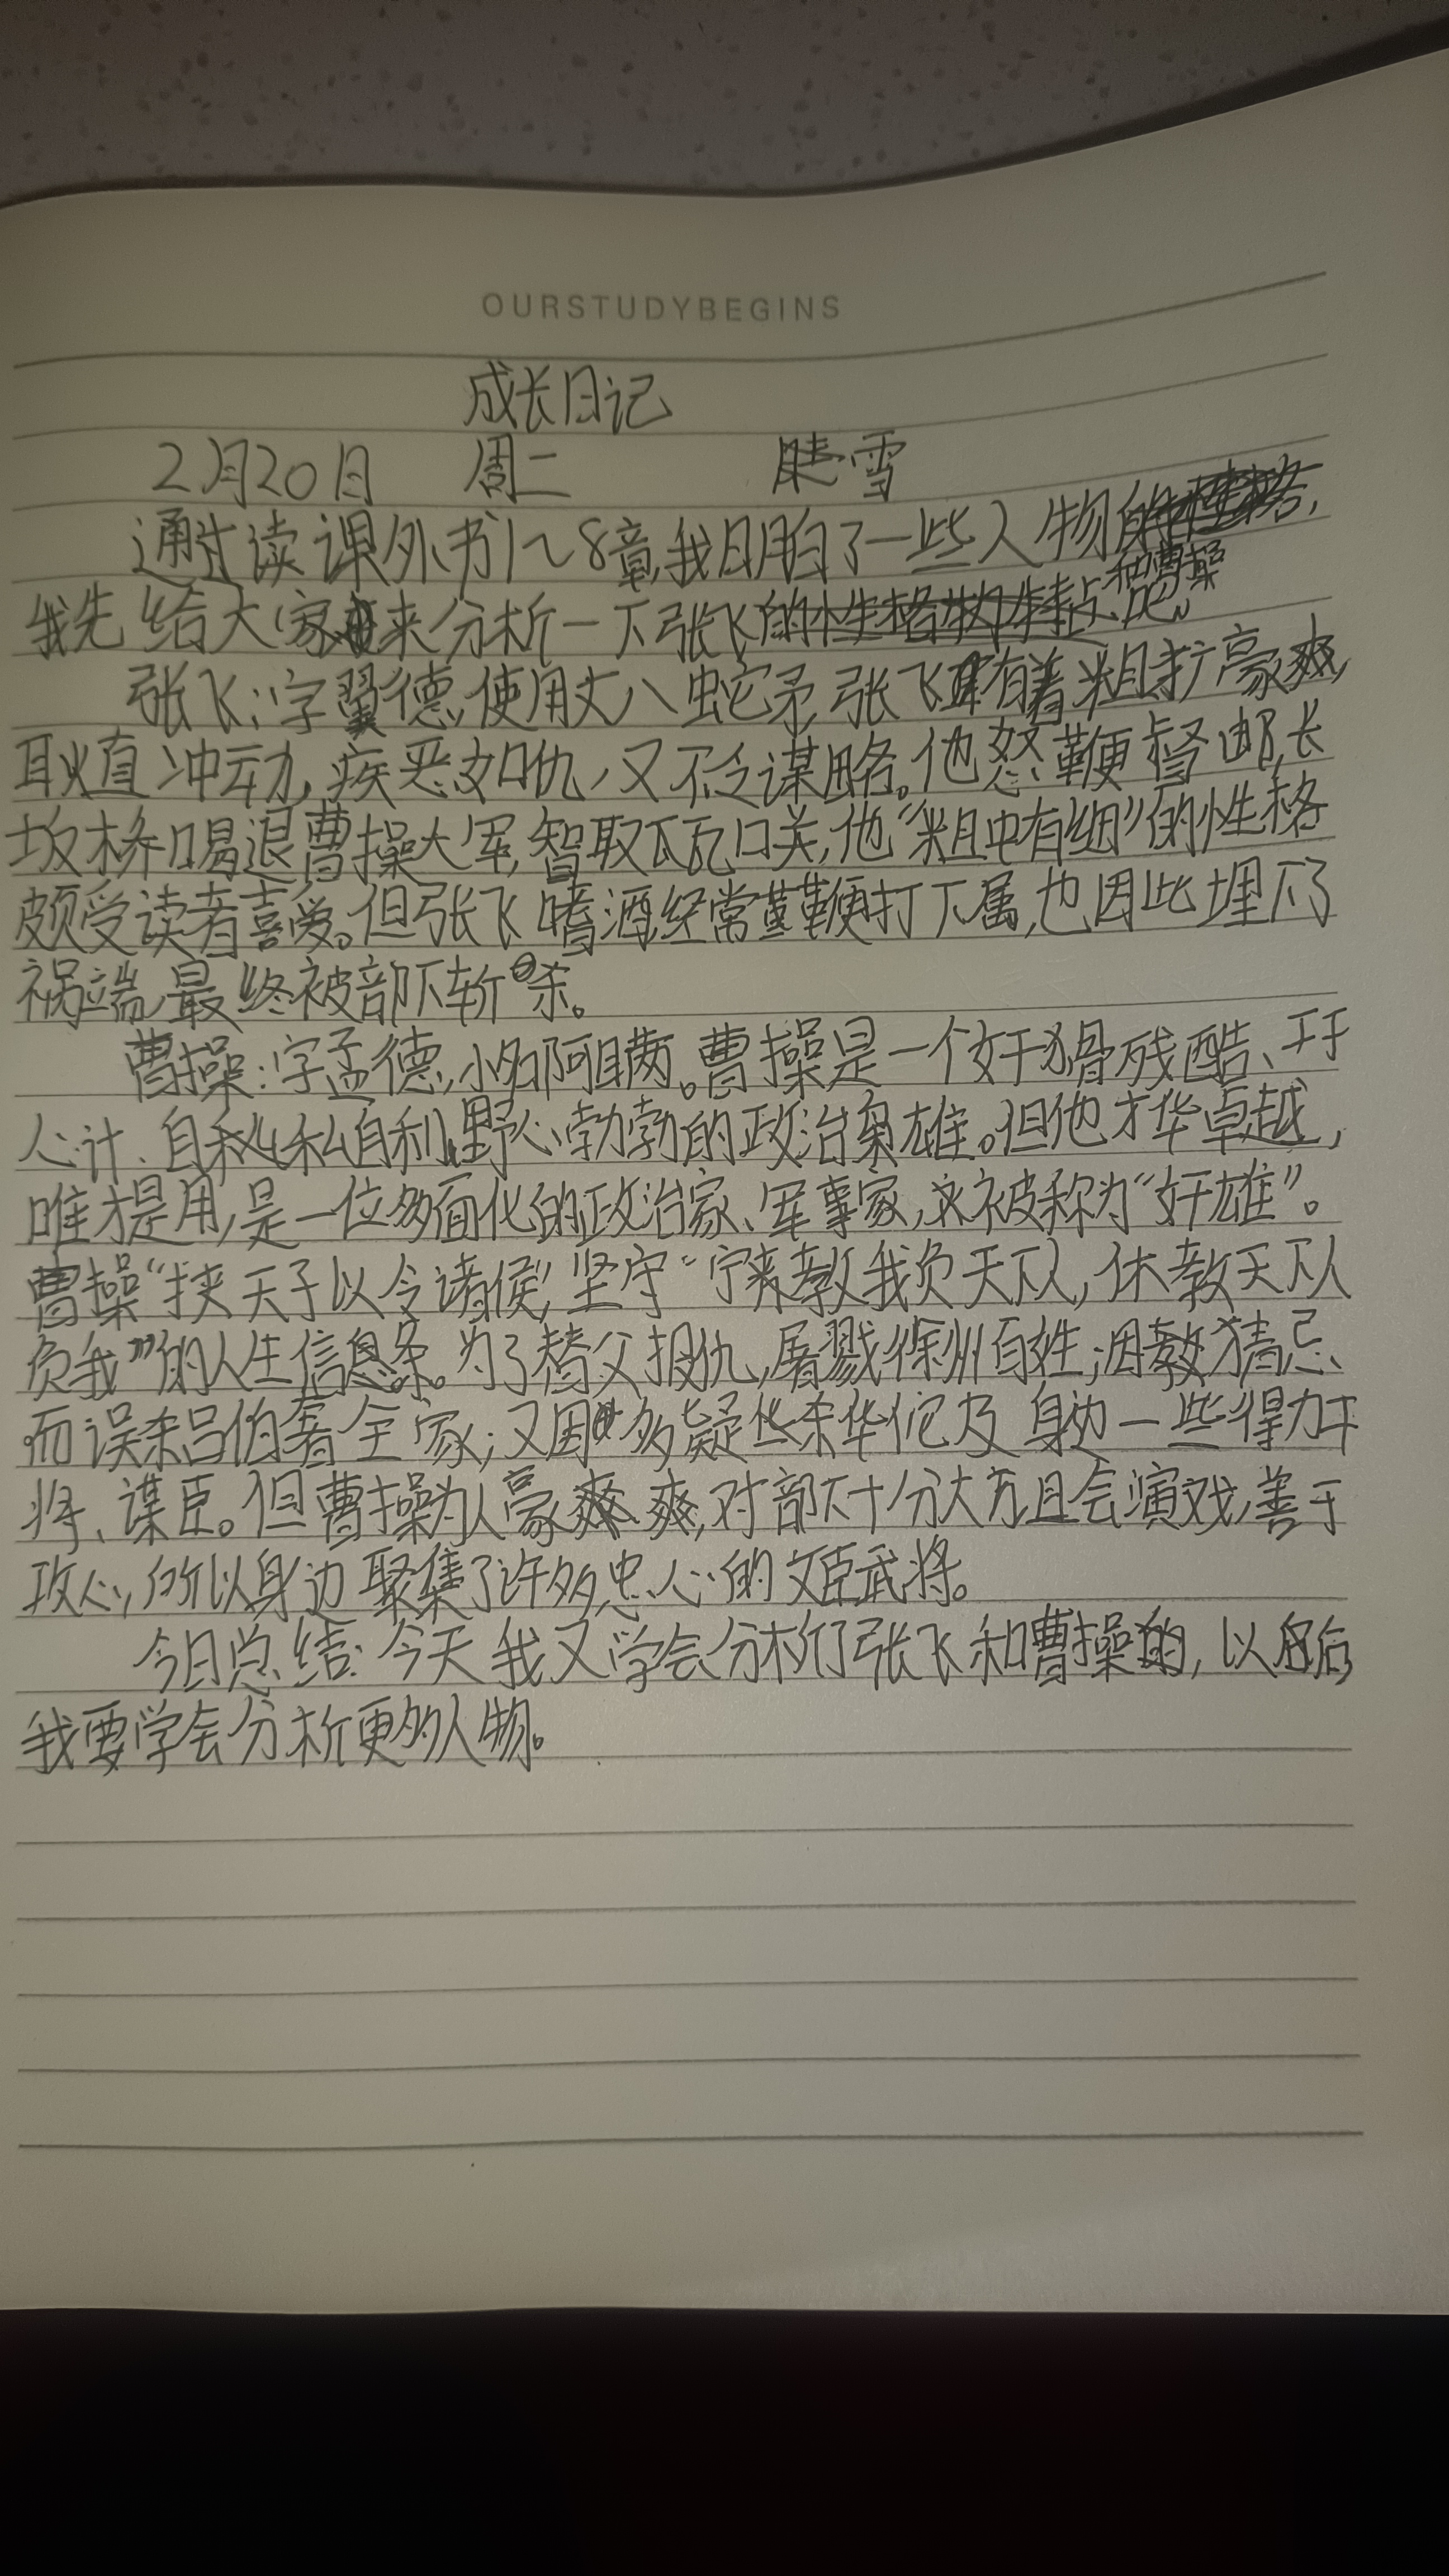 OURSTUDYBEGINS
成长日记
2月20日 周二 晴雪
通过读课外书1~8章,我明白了一些人物的性格,
我先给大家来分析一下张飞的性格特点和曹操吧。
张飞:字翼德,使用丈八蛇矛,张飞有着粗犷豪爽,
耿直冲动,疾恶如仇,又不乏谋略。他怒鞭督邮,长
坂桥喝退曹操大军,智取瓦口关,他“粗中有细”的性格
颇受读者喜爱。但张飞嗜酒,经常鞭打下属,也因此埋下了
祸端,最终被部下斩杀。
曹操:字孟德,小名阿瞒。曹操是一个奸猾残酷、工于
心计、自私自利,野心勃勃的政治枭雄。但他才华卓越,
唯才是用,是一位多面化的政治家、军事家,被称为“奸雄”。
曹操“挟天子以令诸侯”,坚守“宁教我负天下人,休教天下人
负我”的人生信条。为了替父报仇,屠戮徐州百姓;因猜忌
而误杀吕伯奢全家;又因多疑杀华佗及身边一些得力干
将、谋臣。但曹操为人豪爽,对部下十分大方且会演戏,善于
攻心,所以身边聚集了许多忠心的文臣武将。
今日总结:今天我又学会分析了张飞和曹操的,以后
我要学会分析更多人物。